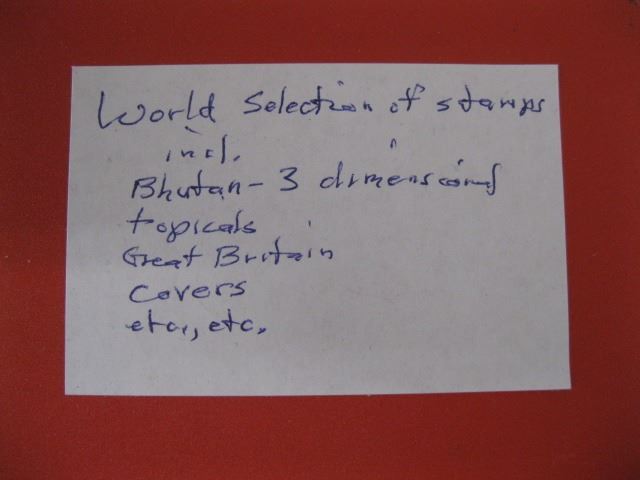 World Selection of stamps
incl.
Bhutan - 3 dimensional
topicals
Great Britain
Covers
etc., etc.